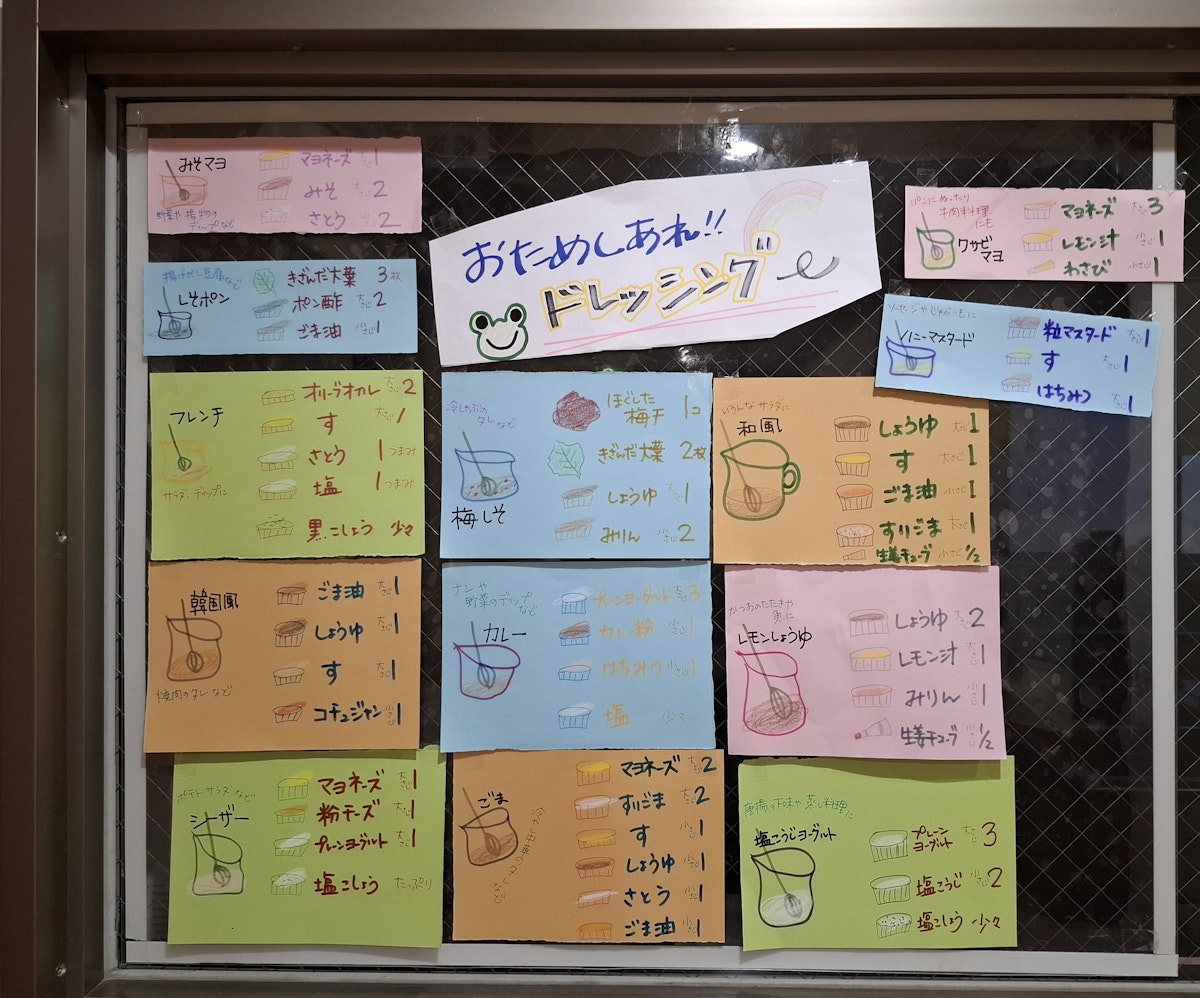 おためしあれ!!
ドレッシング
みそマヨ
野菜や揚物の
ディップなど
マヨネーズ 大さじ1
みそ 大さじ2
さとう 小さじ2
揚げだし豆腐など
しそポン
きざんだ大葉 3枚
ポン酢 大さじ2
ごま油 小さじ1
パンにぬったり
牛肉料理
にも
ワサビ
マヨ
マヨネーズ 大さじ3
レモン汁 小さじ1
わさび 小さじ1
ソーセージやじゃがいもに
ハニーマスタード
粒マスタード 大さじ1
す 大さじ1
はちみつ 大さじ1
フレンチ
サラダ、ディップに
オリーブオイル 大さじ2
す 大さじ1
さとう 1つまみ
塩 1つまみ
黒こしょう 少々
冷しゃぶの
タレなど
梅しそ
ほぐした
梅干 1コ
きざんだ大葉 2枚
しょうゆ 大さじ1
みりん 小さじ2
いろんなサラダに
和風
しょうゆ 大さじ1
す 大さじ1
ごま油 小さじ1
すりごま 大さじ1
生姜チューブ 小さじ1/2
韓国風
焼肉のタレなど
ごま油 大さじ1
しょうゆ 大さじ1
す 大さじ1
コチュジャン 小さじ1
野菜のディップ
など
カレー
プレーンヨーグルト 大さじ3
カレー粉 小さじ1
はちみつ 小さじ1
塩 少々
かつおのたたきや
魚に
レモンしょうゆ
しょうゆ 大さじ2
レモン汁 大さじ1
みりん 小さじ1
生姜チューブ 小さじ1/2
ポテトサラダなど
シーザー
マヨネーズ 大さじ1
粉チーズ 大さじ1
プレーンヨーグルト 大さじ1
塩こしょう たっぷり
ごま
など
マヨネーズ 大さじ2
すりごま 大さじ2
す 小さじ1
しょうゆ 小さじ1
さとう 小さじ1
ごま油 小さじ1
唐揚の下味や蒸し料理に
塩こうじヨーグルト
プレーン
ヨーグルト 大さじ3
塩こうじ 小さじ2
塩こしょう 少々